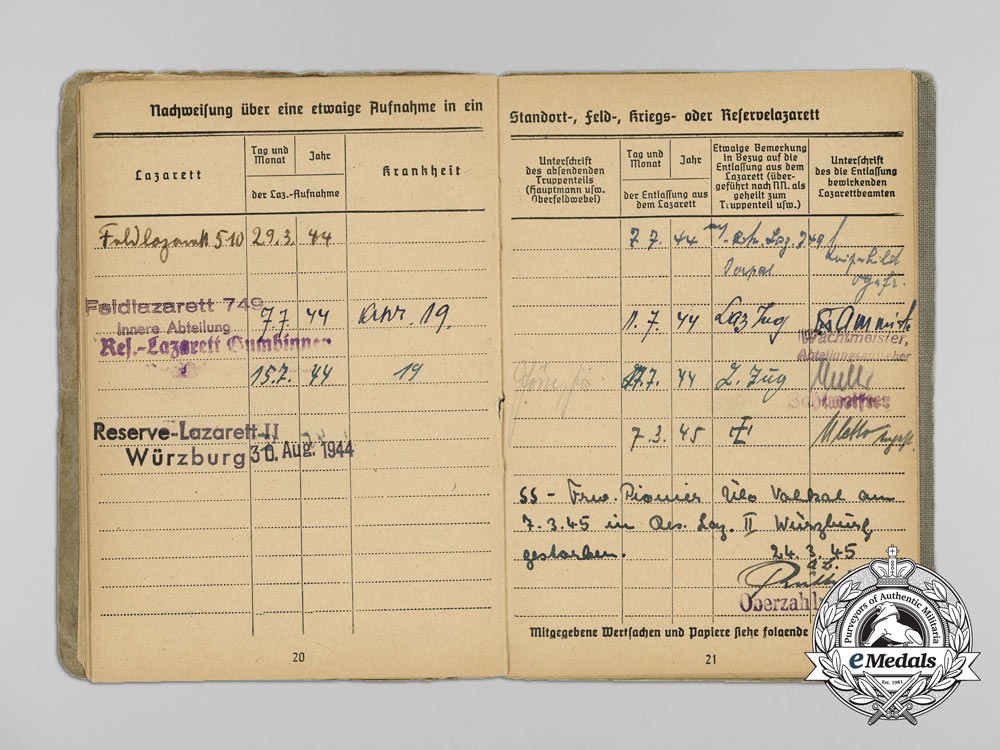 Nachweisung über eine etwaige Aufnahme in ein
Lazarett
Tag und Monat
Jahr
der Laz.-Aufnahme
Krankheit
Feldlazarett 510 29.3. 44
Feldlazarett 749
Innere Abteilung
7.7. 44 19.
Res.-Lazarett Gumbinnen
15.7. 44 19
Reserve-Lazarett II
Würzburg 30. Aug. 1944
20
Standort-, Feld-, Kriegs- oder Reservelazarett
Unterschrift
des absendenden
Truppenteils
(Hauptmann usw.
Oberfeldwebel)
Tag und
Monat
Jahr
der Entlassung aus
dem Lazarett
Etwaige Bemerkung
in Bezug auf die
Entlassung aus dem
Lazarett (über-
geführt nach NN. als
geheilt zum
Truppenteil usw.)
Unterschrift
des die Entlassung
bewirkenden
Lazarettbeamten
7.7. 44 Laz. 749
Dorpat
Ogefr.
1.7. 44 Laz Zug
Wachtmeister,
Abteilungsaufseher
7. 44 L. Zug
7.3. 45
SS - Frw. Pionier Ülo am
7.3.45 in Res. Laz. II Würzburg
gestorben. 24.3.45
Oberzahl
Mitgegebene Wertsachen und Papiere siehe folgende
21
Purveyors of Authentic Militaria
eMedals
Est. 1981